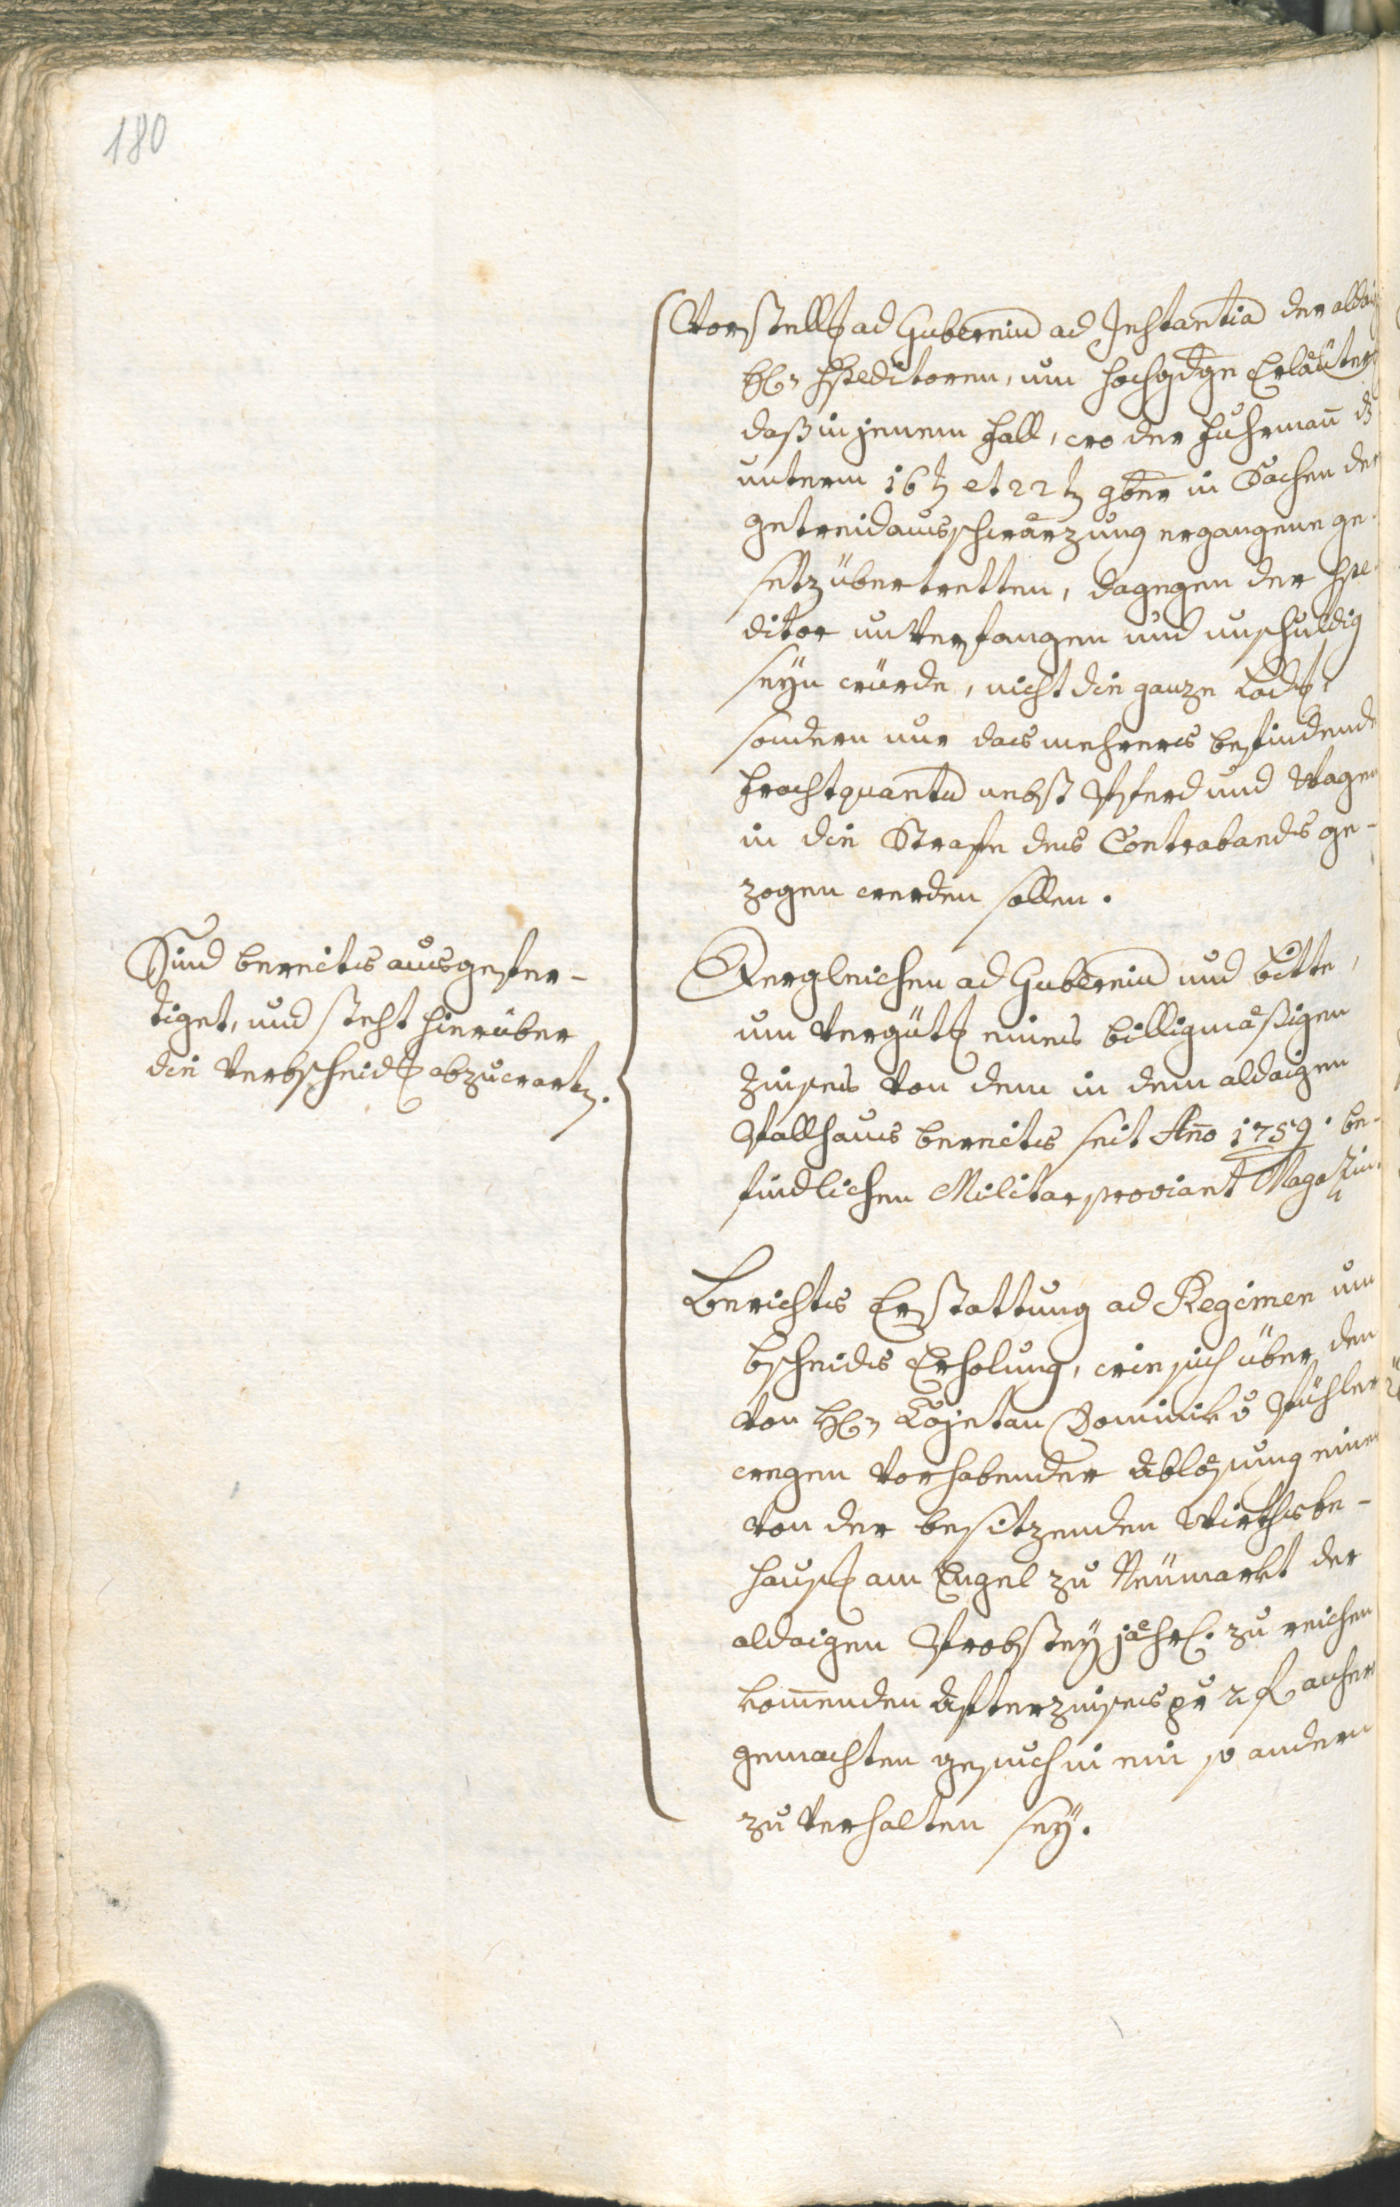 180
Vorstellg ad Guberniu ad Instantia der aldaig
H: Spediteren, um hochgdge Erläuter
daß in jenem Fall, wo der Fuhrmañ ds
unterm 16t et 22t 9ber in Sachen der
getreidausschwärzung ergangene ge-
setz übertretten, dagegen der Spe-
ditor unverfangen und unschuldig
seyn würde, nicht die ganze Ladg,
sondern nur das mehrers befindende
Frachtquantu nebst Pferd und Wagen
in die Strafe des Contrabands ge-
zogen werden sollen.
Sind bereits ausgefer-
tiget, und steht hierüber
die Verbscheidg abzuwartn.
Dergleichen ad Guberniu und bitte,
um Vergütg eines billigmäßigen
Zinses von dem in dem aldaigen
Pallhaus bereits seit Año 1759. be-
findlichen Militar proviant Magazin.
Berichts Erstattung ad Regimen um
bscheids Erholung, wie sich über den
von H: Cajetan Dominik v
wegen vorhabender Ablösung einer
von der besitzenden Wirthsbe-
hausg am Engel zu Neümarkt der
aldaigen Probstey jährl. zu reichen
kom̄enden Afterzinses pr 2 f anher
gemachten gesuch in ein so andern
zu verhalten sey.